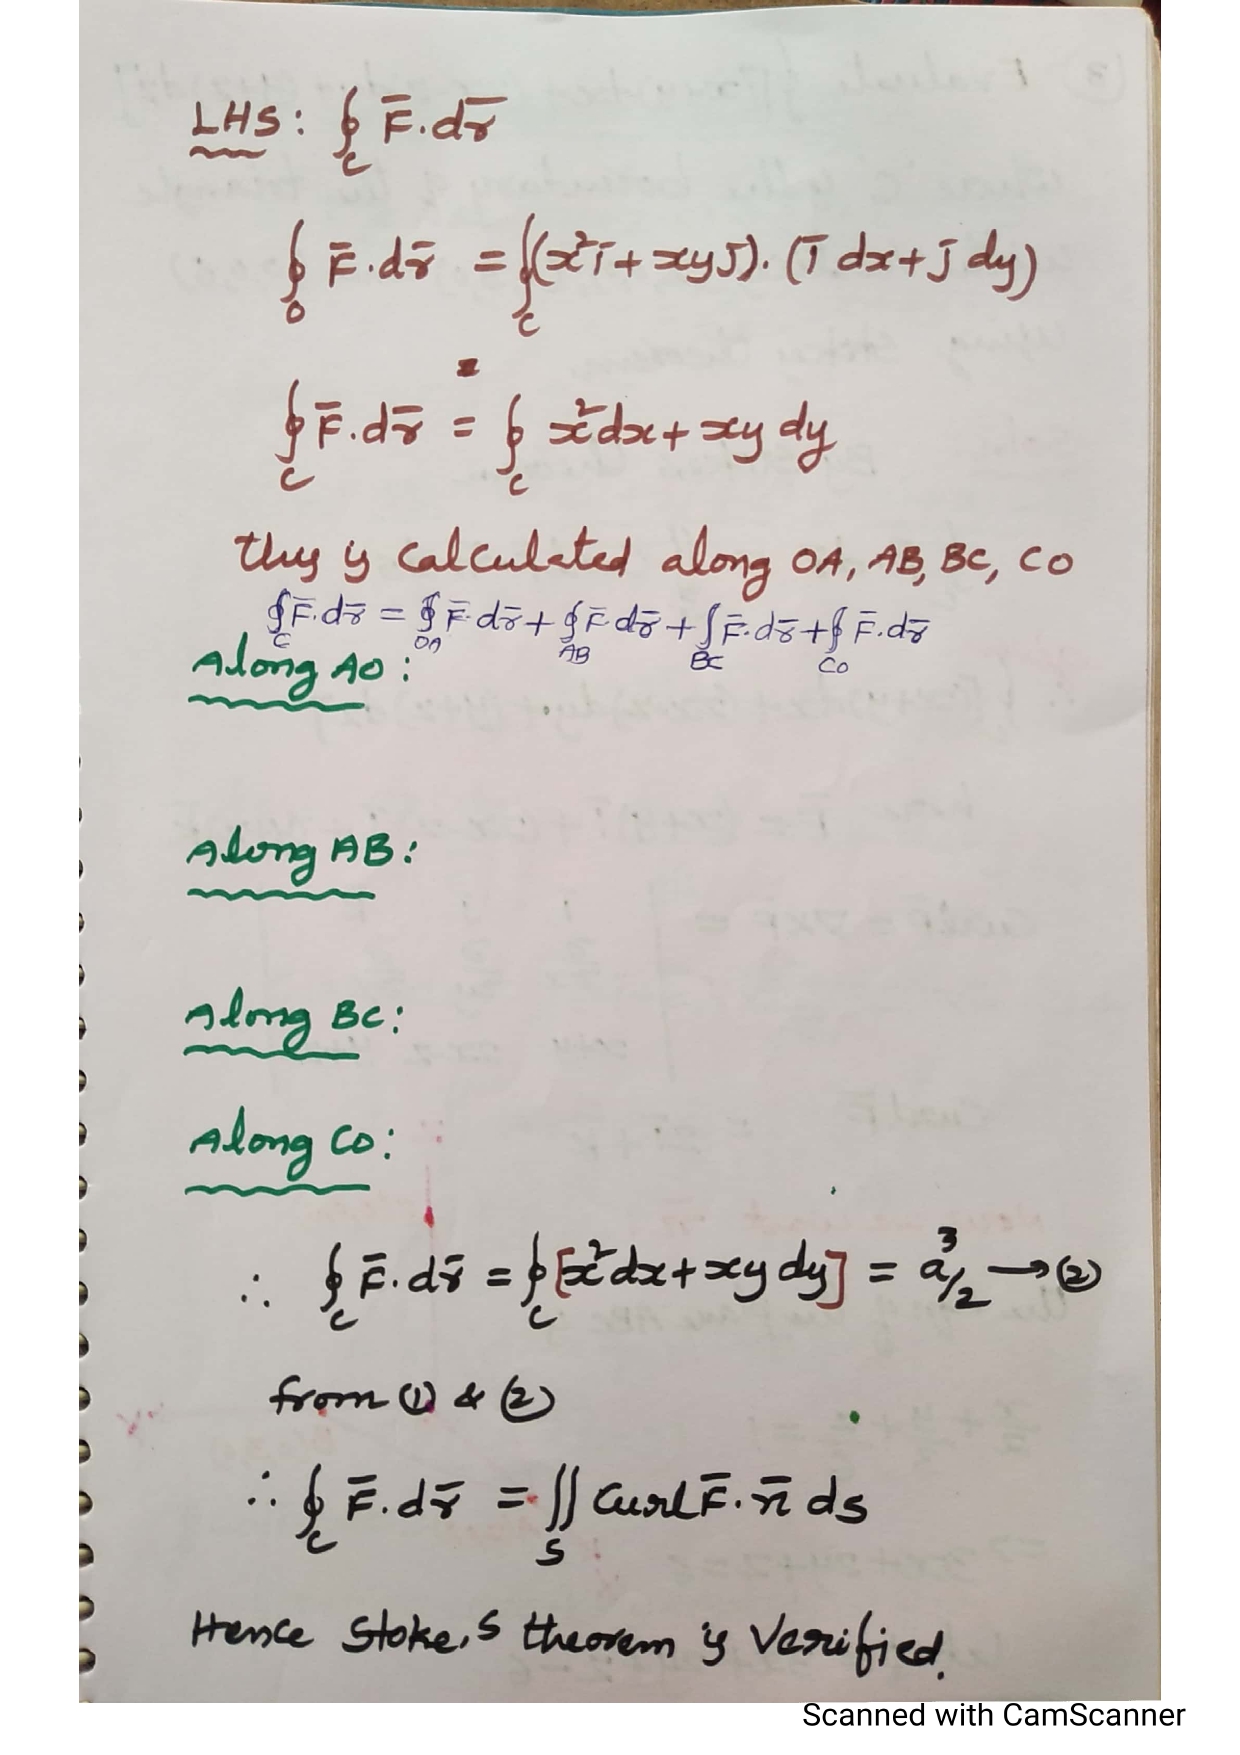 LHS: ∮_C F̅.dr̅
∮_0 F̅.dr̅ = ∮_C (x²i̅ + xyj̅). (i̅ dx + j̅ dy)
∮_C F̅.dr̅ = ∮_C x²dx + xy dy
this is calculated along OA, AB, BC, CO
∮_C F̅.dr̅ = ∮_OA F̅.dr̅ + ∮_AB F̅.dr̅ + ∫_BC F̅.dr̅ + ∮_CO F̅.dr̅
Along AO:
Along AB:
Along BC:
Along CO:
∴ ∮_C F̅.dr̅ = ∮_C [x²dx + xy dy] = a³/2 → ②
from ① & ②
∴ ∮_C F̅.dr̅ = ∬_S Curl F̅. n̅ ds
Hence Stoke,s theorem is Verified.
Scanned with CamScanner